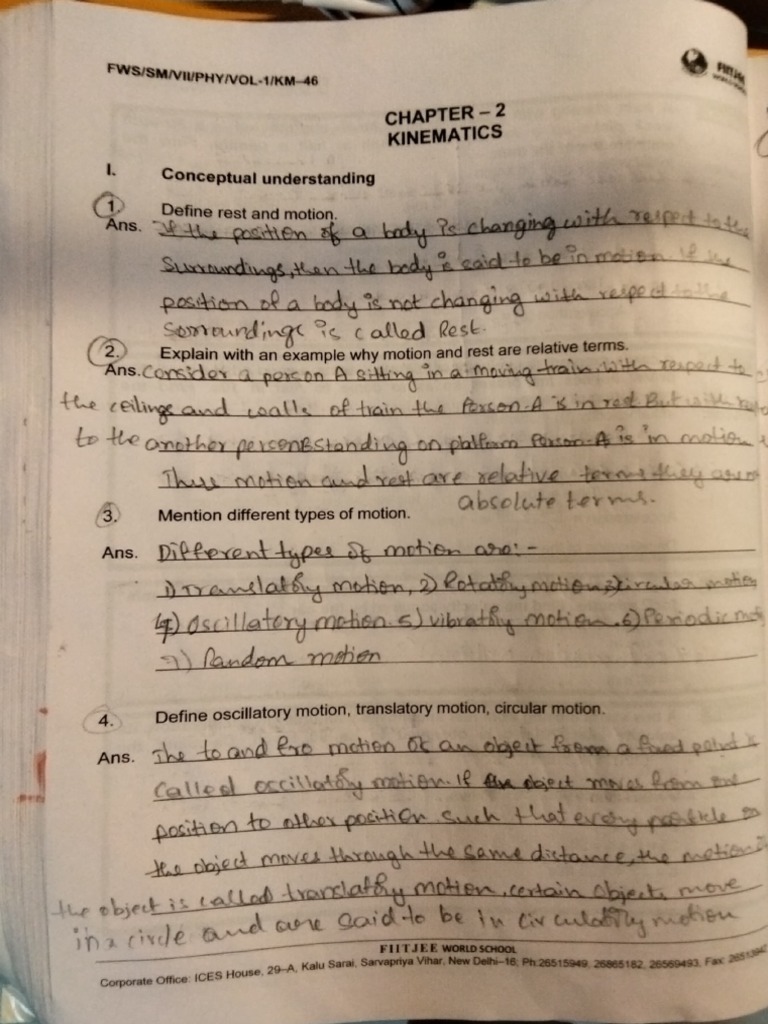 FWS/SM/VII/PHY/VOL-1/KM-46
FIITJEE
CHAPTER – 2
KINEMATICS
I. Conceptual understanding
1. Define rest and motion.
Ans. If the position of a body is changing with respect to the
Surroundings, then the body is said to be in motion. If the
position of a body is not changing with respect to the
Sorroundings is called Rest.
2. Explain with an example why motion and rest are relative terms.
Ans. Consider a person A sitting in a moving train. with respect to
the ceilings and walls of train the Person-A is in rest But with
to the another person B standing on platform Person-A is in motion
Thus motion and rest are relative terms they are
absolute terms.
3. Mention different types of motion.
Ans. Different types of motion are:-
1) Translatory motion, 2) Rotatory motion, 3) circular motion
4) Oscillatory motion. 5) vibratory motion. 6) Periodic
7) Random motion
4. Define oscillatory motion, translatory motion, circular motion.
Ans. The to and fro motion of an object from a fixed point is
Called oscillatory motion. If object moves from one
position to other position such that every particle on
the object moves through the same distance, the motion
the object is called translatory motion, certain objects move
in a circle and are said to be in motion
FIITJEE WORLD SCHOOL
Corporate Office: ICES House, 29–A, Kalu Sarai, Sarvapriya Vihar, New Delhi–16; Ph:26515949, 26865182, 26569493, Fax: